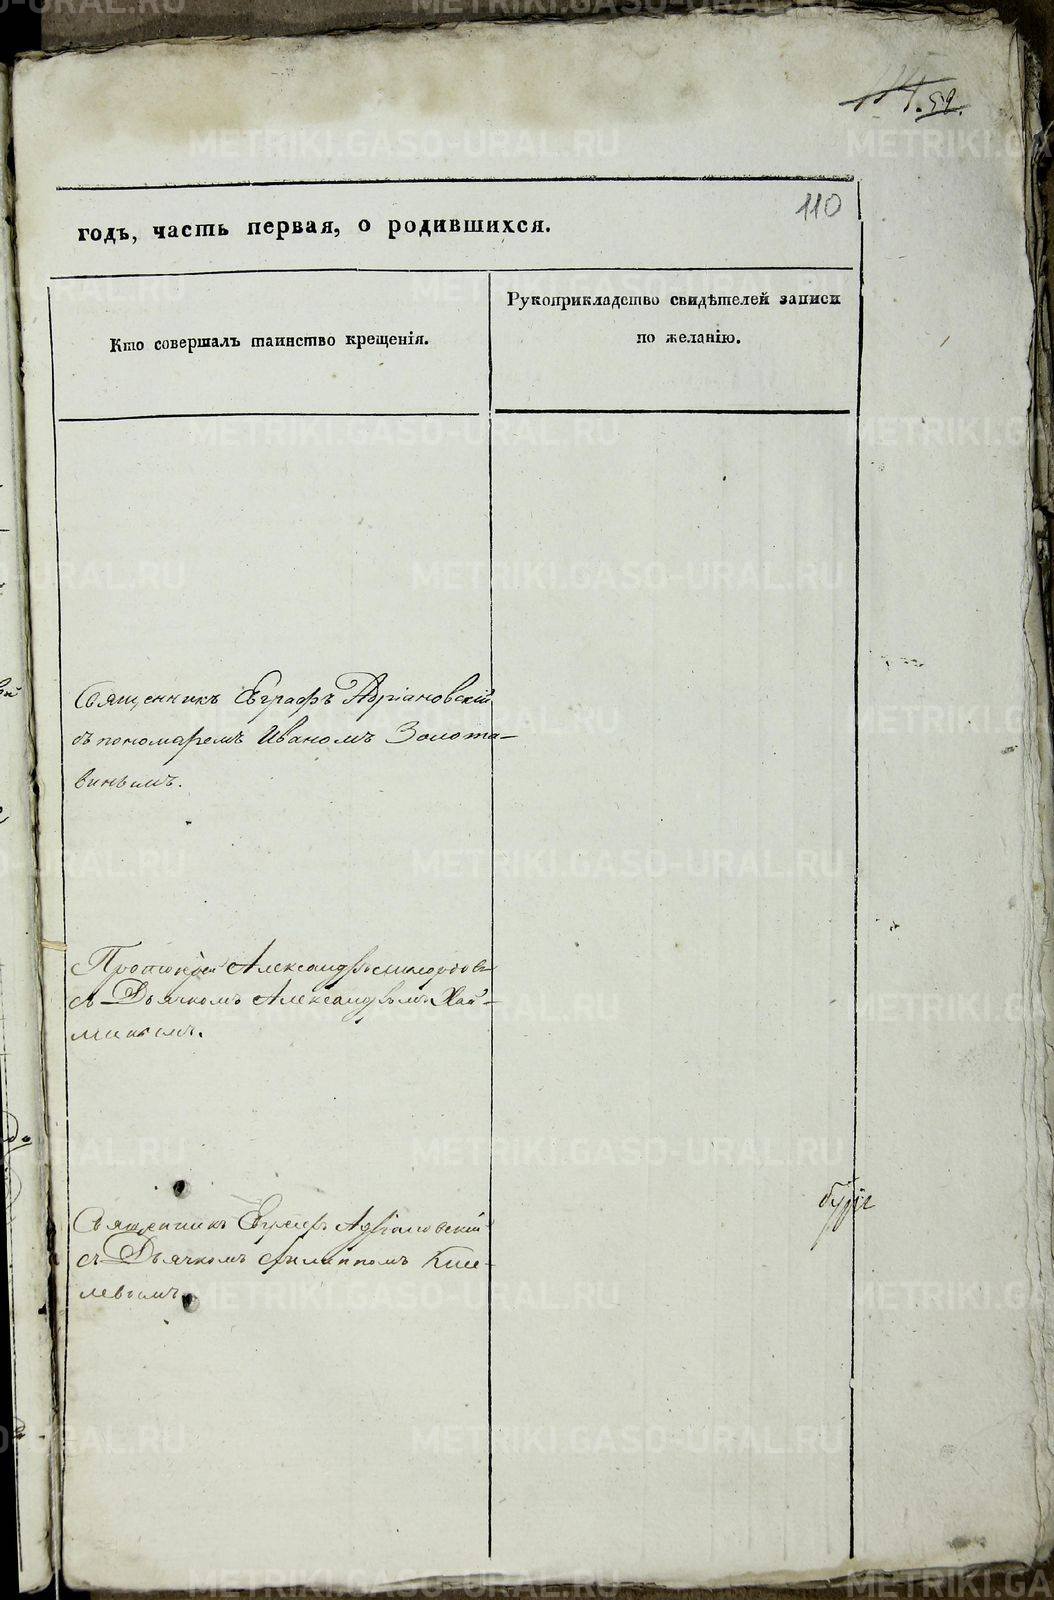 114. 59.
110
годъ, часть первая, о родившихся.
Кто совершалъ таинство крещенія.
Рукоприкладство свидѣтелей записи
по желанію.
Священникъ Евграфъ Адріановскій
съ пономаремъ Иваномъ Золота-
винымъ.
Протоіерей Александръ
съ Дьячкомъ Александромъ Хай-
минымъ.
Священникъ Евграфъ Адріановскій
съ Дьячкомъ Филиппомъ Кисе-
левымъ.
METRIKI.GASO-URAL.RU